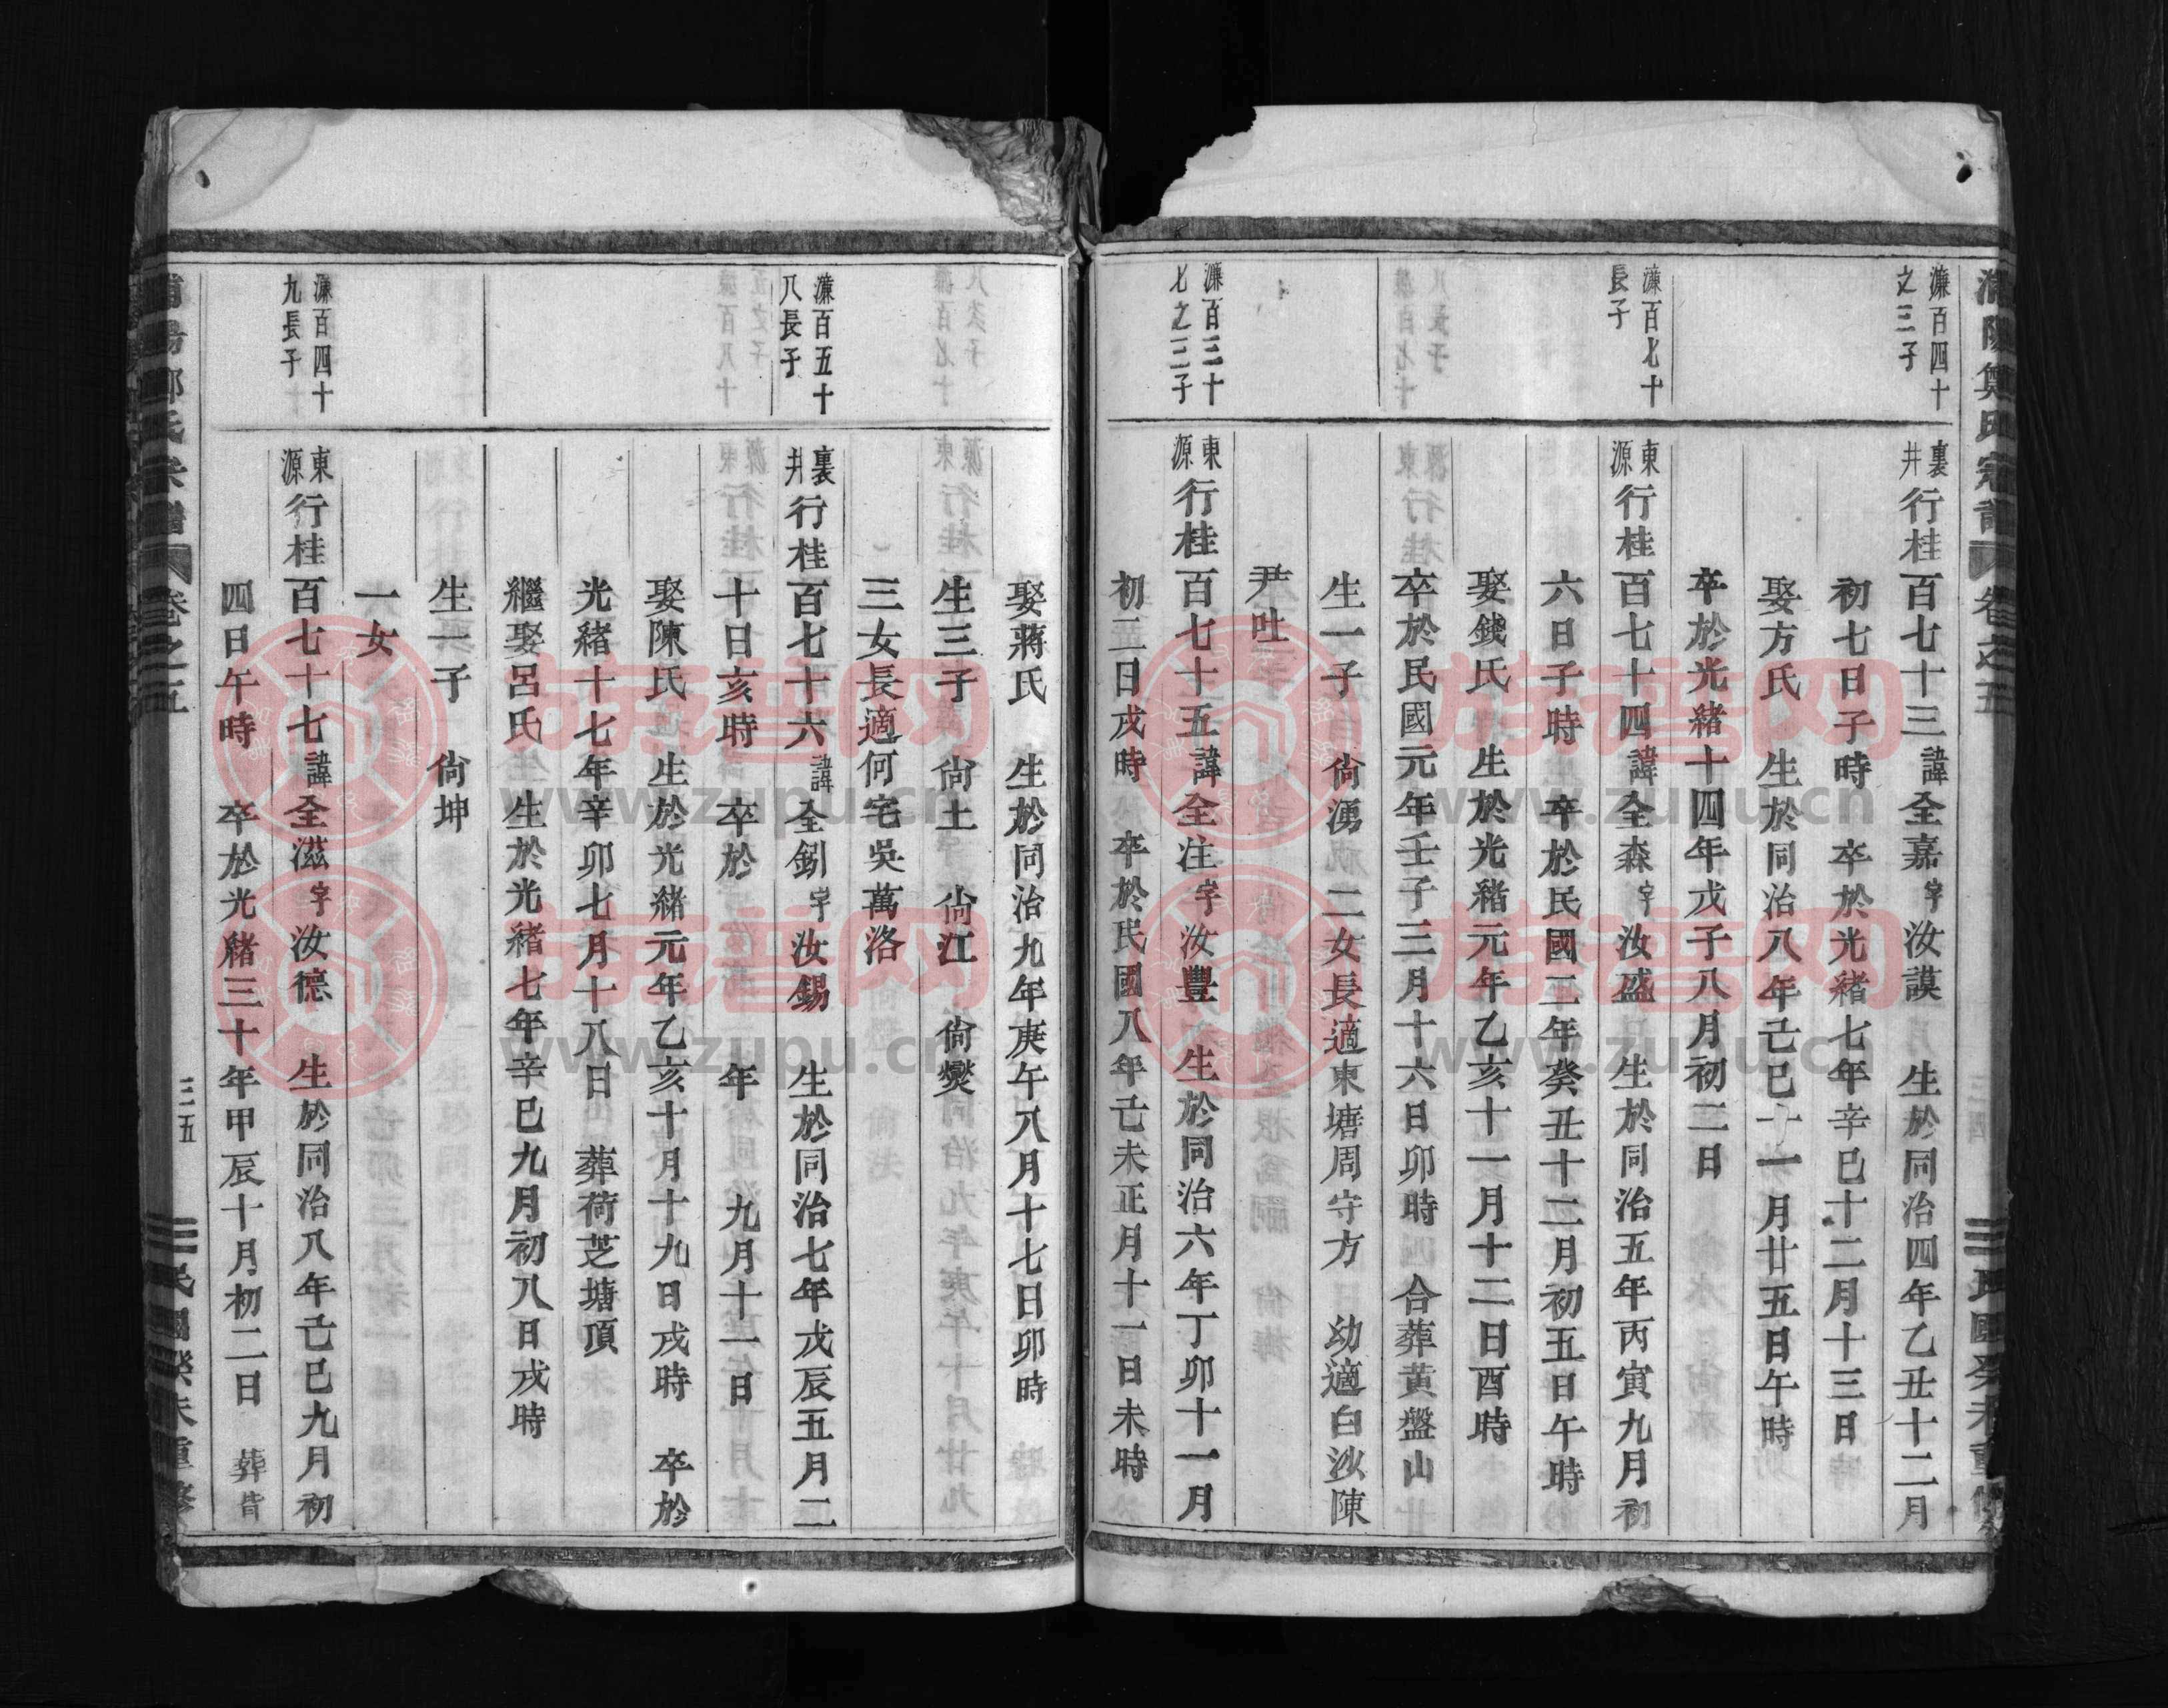 濂百四十
之三子
裏井行桂百七十三諱全嘉字汝謨 生於同治四年乙丑十二月
初七日子時 卒於光緒七年辛巳十二月十三日
娶方氏 生於同治八年己巳十一月廿五日午時
卒於光緒十四年戊子八月初二日
濂百七十
長子
東源行桂百七十四諱全森字汝盛 生於同治五年丙寅九月初
六日子時 卒於民國二年癸丑十二月初五日午時
娶錢氏 生於光緒元年乙亥十一月十二日酉時
卒於民國元年壬子三月十六日卯時 合葬黃盤山
生一子 尙湧 二女長適東塘周守方 幼適白沙陳
尹吐
濂百三十
七之三子
東源行桂百七十五諱全注字汝豐 生於同治六年丁卯十一月
初二日戌時 卒於民國八年己未正月十一日未時
娶蔣氏 生於同治九年庚午八月十七日卯時
生三子 尙土 尙江 尙爕
三女長適何宅吳萬洛
濂百五十
八長子
裏井行桂百七十六諱全釧字汝錫 生於同治七年戊辰五月二
十日亥時 卒於 年 九月十一日
娶陳氏 生於光緒元年乙亥十月十九日戌時 卒於
光緒十七年辛卯七月十八日 葬荷芝塘頂
繼娶呂氏 生於光緒七年辛巳九月初八日戌時
生一子 尙坤
一女
濂百四十
九長子
東源行桂百七十七諱全滋字汝德 生於同治八年己巳九月初
四日午時 卒於光緒三十年甲辰十月初二日 葬皆
浦陽鄭氏宗譜 卷之五
三五
民國癸未重修
族譜网
www.zupu.cn